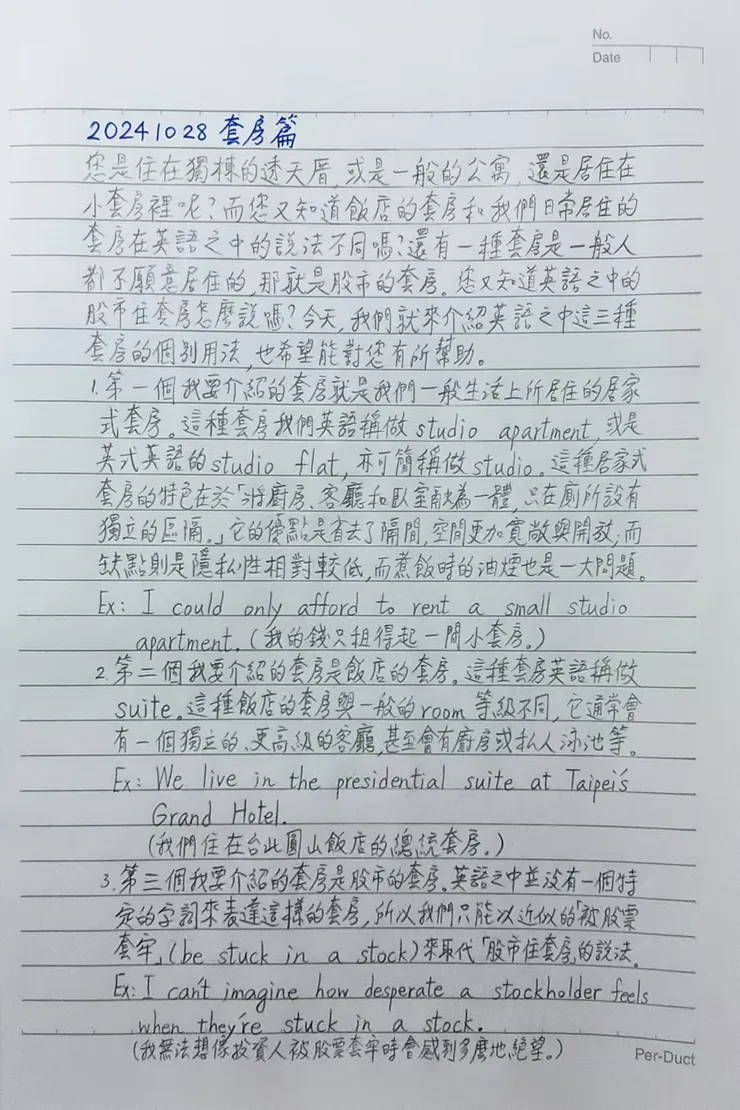 No.
Date
20241028 套房篇
您是住在獨棟的透天厝,或是一般的公寓,還是居住在
小套房裡呢?而您又知道飯店的套房和我們日常居住的
套房在英語之中的說法不同嗎?還有一種套房是一般人
都不願意居住的,那就是股市的套房。您又知道英語之中的
股市住套房怎麼說嗎?今天,我們就來介紹英語之中這三種
套房的個別用法,也希望能對您有所幫助。
1.第一個我要介紹的套房就是我們一般生活上所居住的居家
式套房。這種套房我們英語稱做studio apartment,或是
英式英語的studio flat,亦可簡稱做studio。這種居家式
套房的特色在於「將廚房、客廳和臥室融為一體,只在廁所設有
獨立的區隔。」它的優點是省去了隔間,空間更加寬敞與開放;而
缺點則是隱私性相對較低,而煮飯時的油煙也是一大問題。
Ex: I could only afford to rent a small studio
apartment.(我的錢只租得起一間小套房。)
2.第二個我要介紹的套房是飯店的套房。這種套房英語稱做
suite。這種飯店的套房與一般的room等級不同,它通常會
有一個獨立的、更高級的客廳,甚至會有廚房或私人泳池等。
Ex: We live in the presidential suite at Taipei's
Grand Hotel.
(我們住在台北圓山飯店的總統套房。)
3.第三個我要介紹的套房是股市的套房。英語之中並沒有一個特
定的字詞來表達這樣的套房,所以我們只能以近似的「被股票
套牢」(be stuck in a stock)來取代「股市住套房」的說法。
Ex: I can't imagine how desperate a stockholder feels
when they're stuck in a stock.
(我無法想像投資人被股票套牢時會感到多麼地絕望。)
Per-Duct